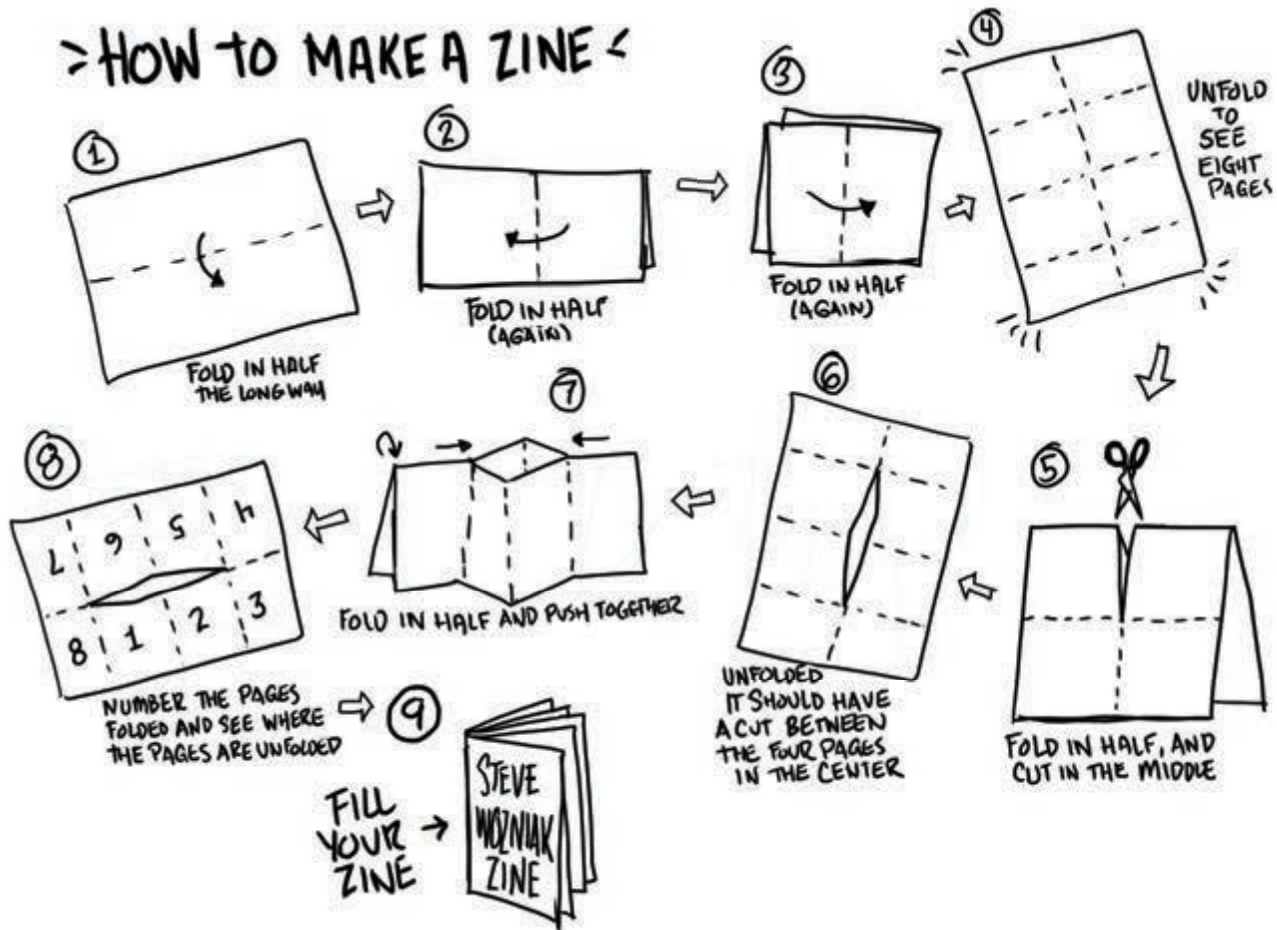 HOW TO MAKE A ZINE
1
FOLD IN HALF
THE LONG WAY
2
FOLD IN HALF
(AGAIN)
3
FOLD IN HALF
(AGAIN)
4
UNFOLD
TO
SEE
EIGHT
PAGES
5
FOLD IN HALF, AND
CUT IN THE MIDDLE
6
UNFOLDED
IT SHOULD HAVE
A CUT BETWEEN
THE FOUR PAGES
IN THE CENTER
7
FOLD IN HALF AND PUSH TOGETHER
8
7 6 5 4
8 1 2 3
NUMBER THE PAGES
FOLDED AND SEE WHERE
THE PAGES ARE UNFOLDED
9
FILL
YOUR
ZINE
STEVE
WOZNIAK
ZINE